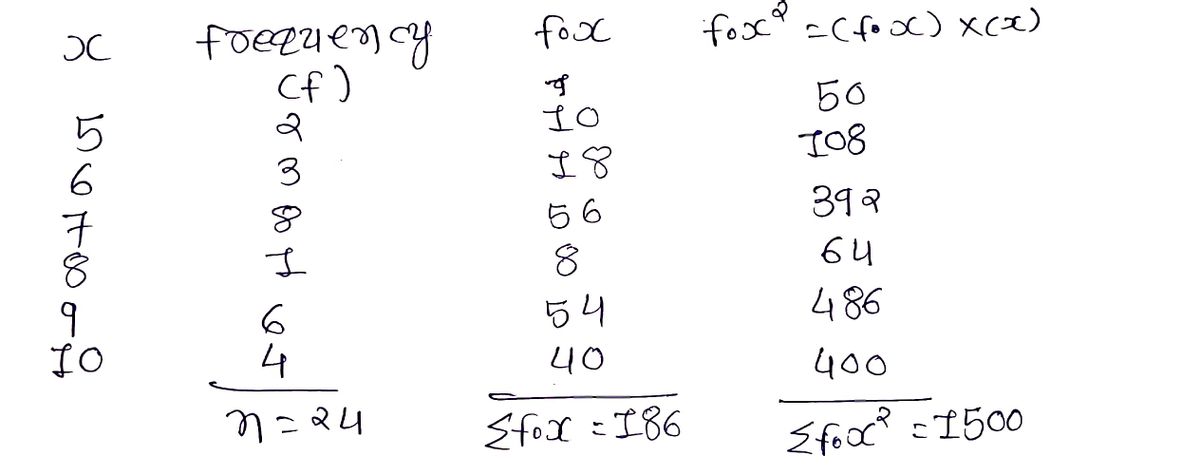 x frequency f.x f.x² =(f.x) x(x)
(f)
5 2 10 50
6 3 18 108
7 8 56 392
8 1 8 64
9 6 54 486
10 4 40 400
n=24 Σf.x =186 Σf.x² =1500